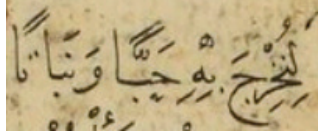 لِنُخْرِجَ بِهِ حَبًّا وَنَبَاتًا